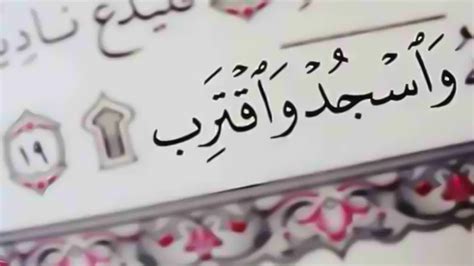 فليدع نادي
وَٱسْجُدْ وَٱقْتَرِب ۩ ١٩